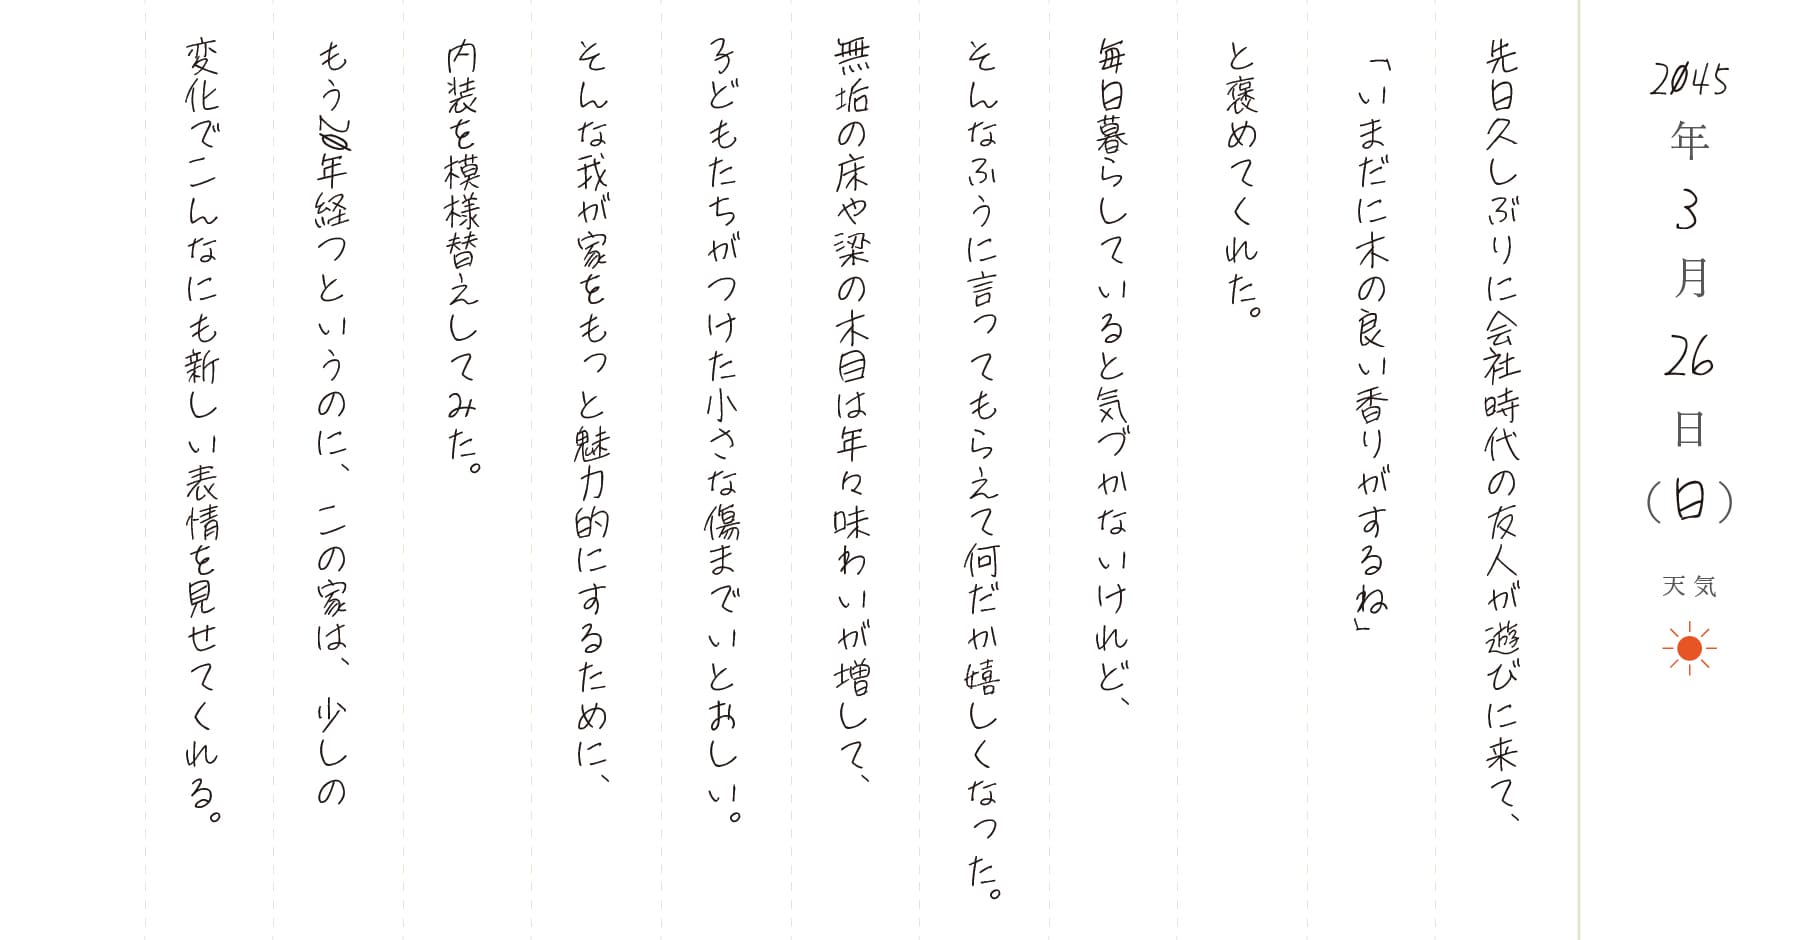 2045年3月26日（日）
天気
先日久しぶりに会社時代の友人が遊びに来て、
「いまだに木の良い香りがするね」
と褒めてくれた。
毎日暮らしていると気づかないけれど、
そんなふうに言ってもらえて何だか嬉しくなった。
無垢の床や梁の木目は年々味わいが増して、
子どもたちがつけた小さな傷までいとおしい。
そんな我が家をもっと魅力的にするために、
内装を模様替えしてみた。
もう20年経つというのに、この家は、少しの
変化でこんなにも新しい表情を見せてくれる。